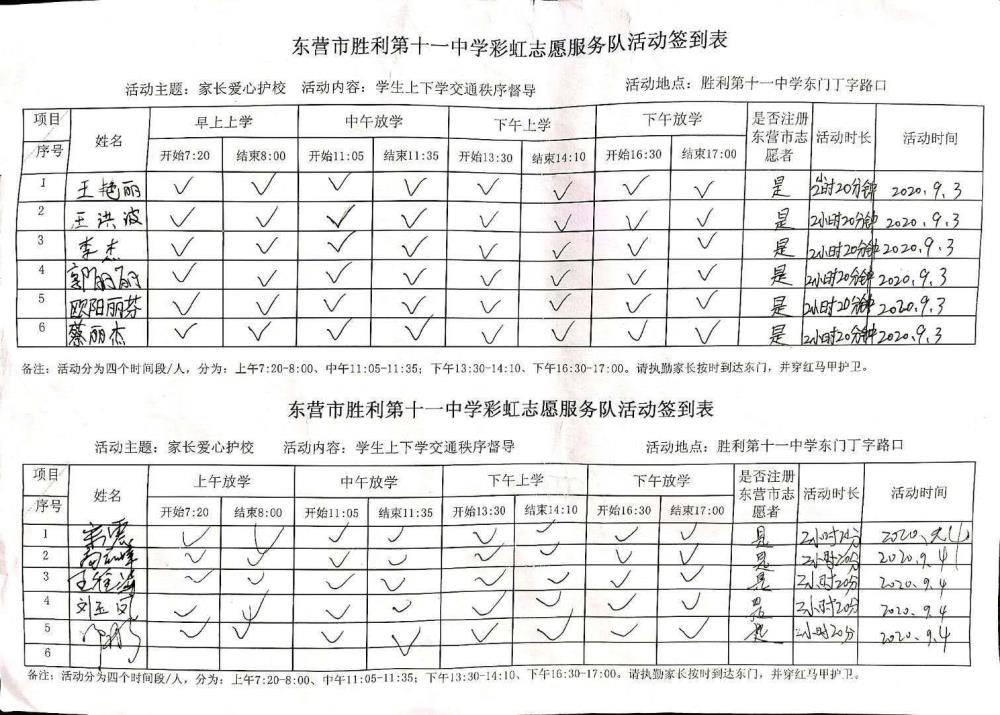 东营市胜利第十一中学彩虹志愿服务队活动签到表
活动主题：家长爱心护校 活动内容：学生上下学交通秩序督导 活动地点：胜利第十一中学东门丁字路口
项目 序号 姓名 早上上学 中午放学 下午上学 下午放学 是否注册东营市志愿者 活动时长 活动时间
开始7:20 结束8:00 开始11:05 结束11:35 开始13:30 结束14:10 开始16:30 结束17:00
1 王艳丽 ✓ ✓ ✓ ✓ ✓ ✓ ✓ ✓ 是 2小时20分钟 2020.9.3
2 王洪波 ✓ ✓ ✓ ✓ ✓ ✓ ✓ ✓ 是 2小时20分钟 2020.9.3
3 李杰 ✓ ✓ ✓ ✓ ✓ ✓ ✓ ✓ 是 2小时20分钟 2020.9.3
4 郭丽丽 ✓ ✓ ✓ ✓ ✓ ✓ ✓ ✓ 是 2小时20分钟 2020.9.3
5 欧阳丽芬 ✓ ✓ ✓ ✓ ✓ ✓ ✓ ✓ 是 2小时20分钟 2020.9.3
6 蔡丽杰 ✓ ✓ ✓ ✓ ✓ ✓ ✓ ✓ 是 2小时20分钟 2020.9.3
备注：活动分为四个时间段/人，分为：上午7:20-8:00、中午11:05-11:35；下午13:30-14:10、下午16:30-17:00。请执勤家长按时到达东门，并穿红马甲护卫。
东营市胜利第十一中学彩虹志愿服务队活动签到表
活动主题：家长爱心护校 活动内容：学生上下学交通秩序督导 活动地点：胜利第十一中学东门丁字路口
项目 序号 姓名 上午放学 中午放学 下午上学 下午放学 是否注册东营市志愿者 活动时长 活动时间
开始7:20 结束8:00 开始11:05 结束11:35 开始13:30 结束14:10 开始16:30 结束17:00
1 ✓ ✓ ✓ ✓ ✓ ✓ ✓ ✓ 是 2小时20分 2020.
2 ✓ ✓ ✓ ✓ ✓ ✓ ✓ ✓ 是 2小时20分 2020.9.4
3 ✓ ✓ ✓ ✓ ✓ ✓ ✓ ✓ 是 2小时20分 2020.9.4
4 刘玉凤 ✓ ✓ ✓ ✓ ✓ ✓ ✓ ✓ 是 2小时20分 2020.9.4
5 ✓ ✓ ✓ ✓ ✓ ✓ ✓ ✓ 是 2小时20分 2020.9.4
6
备注：活动分为四个时间段/人，分为：上午7:20-8:00、中午11:05-11:35；下午13:30-14:10、下午16:30-17:00。请执勤家长按时到达东门，并穿红马甲护卫。